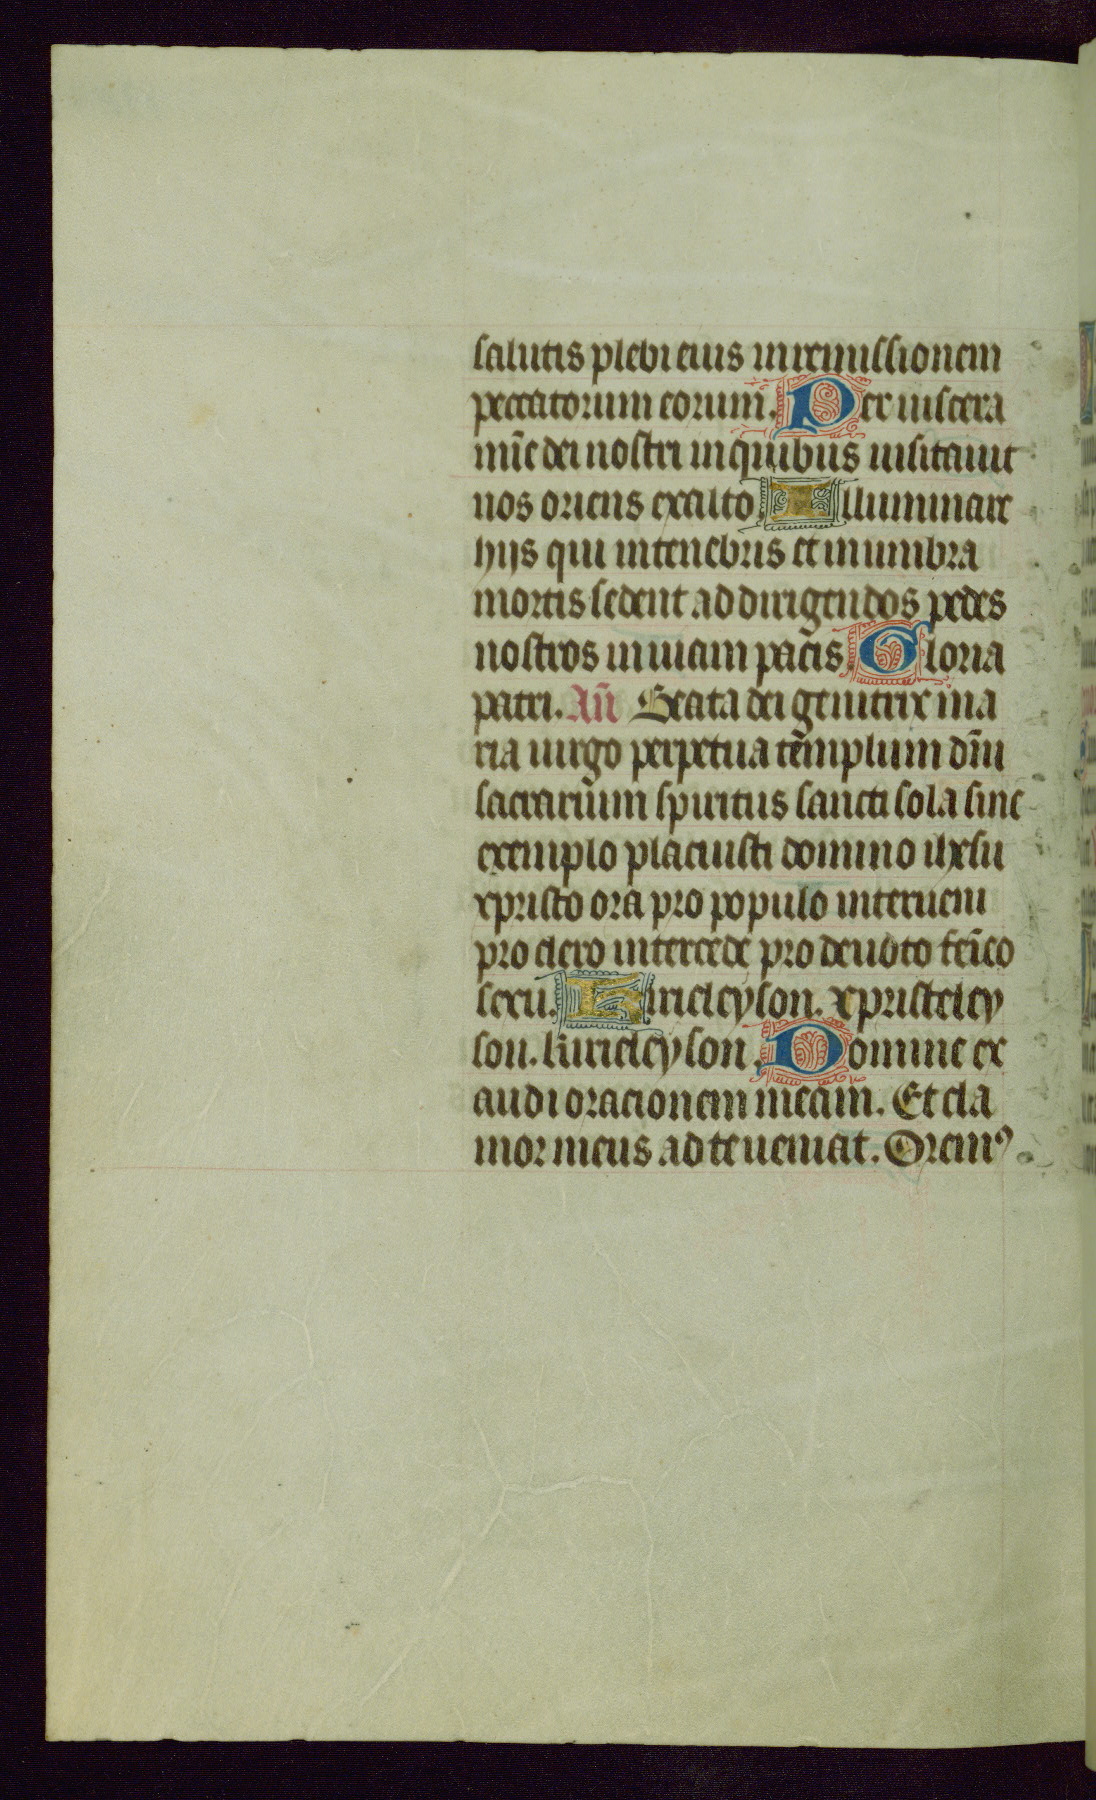 salutis plebi eius in remissionem
peccatorum eorum̄. Per uiscera
mīe dei nostri in quibus uisitauit
nos oriens ex alto. Illuminare
hijs qui in tenebris et in umbra
mortis sedent ad dirigendos pedes
nostros in uiam pacis. Gloria
patri. Añ Beata dei genitrix ma
ria uirgo perpetua templum dn̄i
sacrarium spiritus sancti sola sine
exemplo placuisti domino ihesu
xpristo ora pro populo interueni
pro clero intercede pro deuoto femīeo
sexu. Kirieleyson. xpristeley
son. kirieleyson. Domine ex
audi oracionem meam. Et cla
mor meus ad te ueniat. Oremꝰ